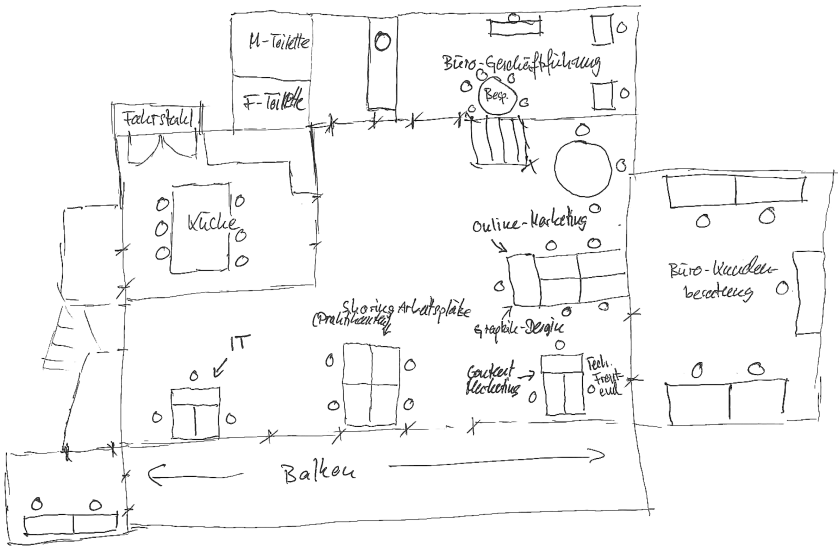 M-Toilette
F-Toilette
Fahrstuhl
Büro-Geschäftsführung
Besp.
Küche
Online-Marketing
Büro-Kunden-
beratung
Sharing Arbeitsplätze
(Praktikanten)
Graphik-Design
IT
Content
Marketing
Tech.
Front-
end
Balkon